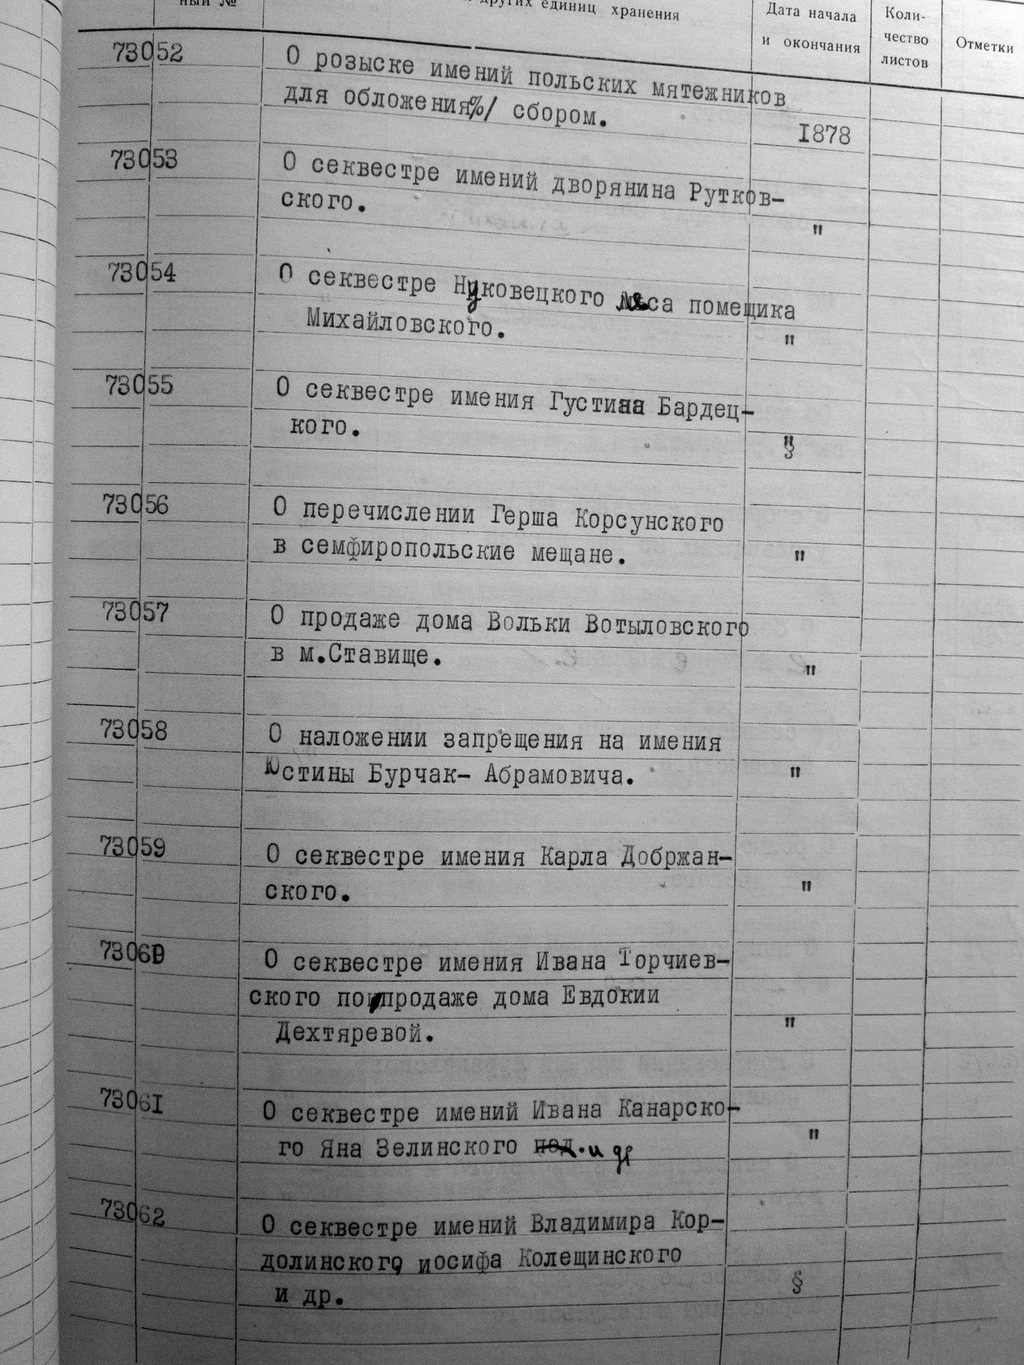 ный № других единиц хранения Дата начала и окончания Коли-чество листов Отметки
73052 О розыске имений польских мятежников
для обложения%/ сбором. 1878
73053 О секвестре имений дворянина Рутков-
ского. "
73054 О секвестре Нуковецкого леса помещика
Михайловского. "
73055 О секвестре имения Густина Бардец-
кого. "
73056 О перечислении Герша Корсунского
в семфиропольские мещане. "
73057 О продаже дома Вольки Вотыловского
в м.Ставище. "
73058 О наложении запрещения на имения
Юстины Бурчак- Абрамовича. "
73059 О секвестре имения Карла Добржан-
ского. "
73060 О секвестре имения Ивана Торчиев-
ского по продаже дома Евдокии
Дехтяревой. "
73061 О секвестре имений Ивана Канарско-
го Яна Зелинского и др "
73062 О секвестре имений Владимира Кор-
долинского иосифа Колещинского
и др. §